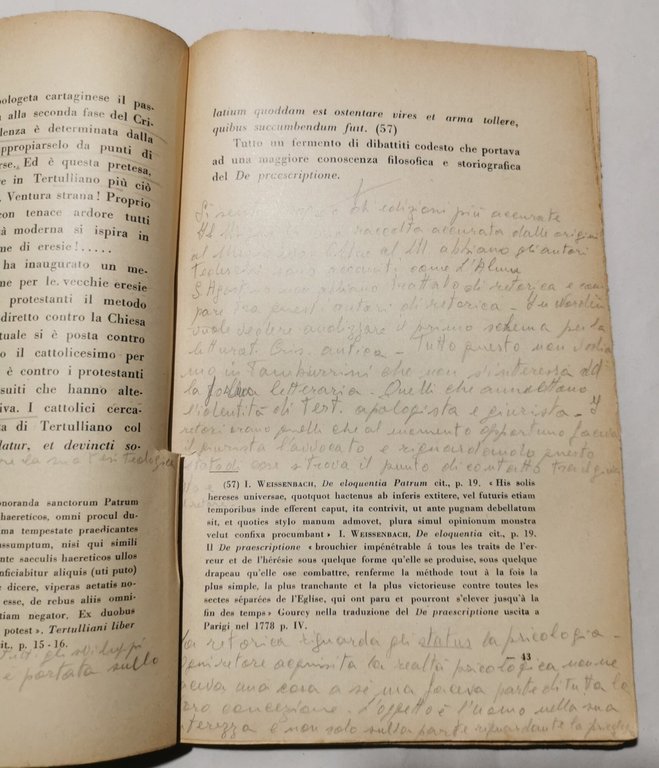 ologeta cartaginese il pas-
alla seconda fase del Cri-
lenza è determinata dalla
ppropiarselo da punti di
rse. Ed è questa pretesa,
e in Tertulliano più ciò
. Ventura strana! Proprio
con tenace ardore tutti
à moderna si ispira in
ne di eresie!.....
ha inaugurato un me-
ne per le vecchie eresie
protestanti il metodo
diretto contro la Chiesa
tuale si è posta contro
il cattolicesimo per
è contro i protestanti
suiti che hanno alte-
iva. I cattolici cerca-
ta di Tertulliano col
datur, et devincti so-
la sua tesi teologica
onoranda sanctorum Patrum
haereticos, omni procul du-
ma tempestate praedicantes
ssumptum, nisi qui simili
nte saeculis haereticos ullos
nficiabitur aliquis (uti puto)
dicere, viperas aetatis no-
esse, de rebus aliis omni-
tiam negator. Ex duobus
potest ». Tertulliani liber
it., p. 15 - 16.
gli sviluppi
e portata sullo
latium quoddam est ostentare vires et arma tollere,
quibus succumbendum fuit. (57)
Tutto un fermento di dibattiti codesto che portava
ad una maggiore conoscenza filosofica e storiografica
del De praescriptione.
Si edizioni più accurate
raccolta accurata dalle origini
al abbiamo gli autori
Tedeschi come
S. Agostino trattato di retorica e
questi autori di retorica -
vuole analizzare il primo schema per la
antica - Tutto questo non
in Tamburrini che non s'interessa del
la forma letteraria - Quelli che
l'identità di Tert. apologista e giurista -
retori erano quelli che al momento opportuno
il l'avvocato e riguardando questo
status trova il punto di contatto tra
(57) I. Weissenbach, De eloquentia Patrum cit., p. 19. « His solis
hereses universae, quotquot hactenus ab inferis extitere, vel futuris etiam
temporibus inde efferent caput, ita contrivit, ut ante pugnam debellatum
sit, et quoties stylo manum admovet, plura simul opinionum monstra
velut confixa procumbant » I. Weissenbach, De eloquentia cit., p. 19.
Il De praescriptione « brouchier impénétrable à tous les traits de l'er-
reur et de l'hérésie sous quelque forme qu'elle se produise, sous quelque
drapeau qu'elle ose combattre, renferme la méthode tout à la fois la
plus simple, la plus tranchante et la plus victorieuse contre toutes les
sectes séparées de l'Eglise, qui ont paru et pourront s'elever jusqu'à la
fin des temps » Gourcy nella traduzione del De praescriptione uscita a
Parigi nel 1778 p. IV.
La retorica riguarda gli status la psicologia -
43
retore acquisita la realtà psicologica non ne
faceva una cosa a sè ma faceva parte di tutta la
loro concezione - L'oggetto è l'uomo nella sua
interezza e non solo sulla parte riguardante la